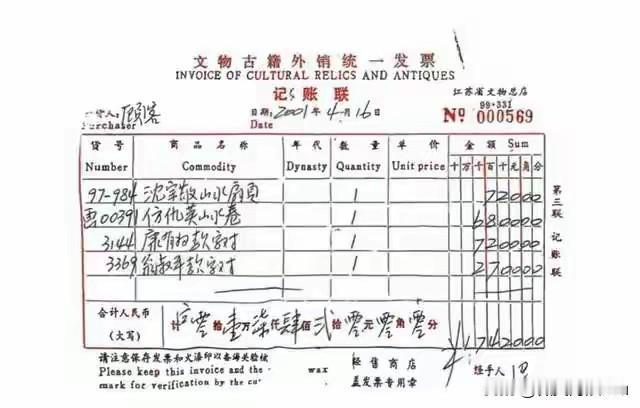 文物古籍外销统一发票
INVOICE OF CULTURAL RELICS AND ANTIQUES
记账联
江苏省文物总店
99·331
货人: 顾客 日期: 2001年4月16日 № 000569
Purchaser Date
货号 商品名称 年代 数量 单价 金额 Sum
Number Commodity Dynasty Quantity Unit price 十万千百十元角分
97-984 沈宗敬山水扇页 1 72000
00391 仿仇英山水卷 1 680000
3144 康有为款字对 1 720000
3369 翁叔平款字对 1 270000
第三联 记账联
合计人民币
(大写) 计 零拾壹万柒仟肆佰贰拾零元零角零分 1742000
请注意保存发票和火漆印以备海关验核
Please keep this invoice and the wax
mark for verification by the cu
经售商店
盖发票专用章
经手人